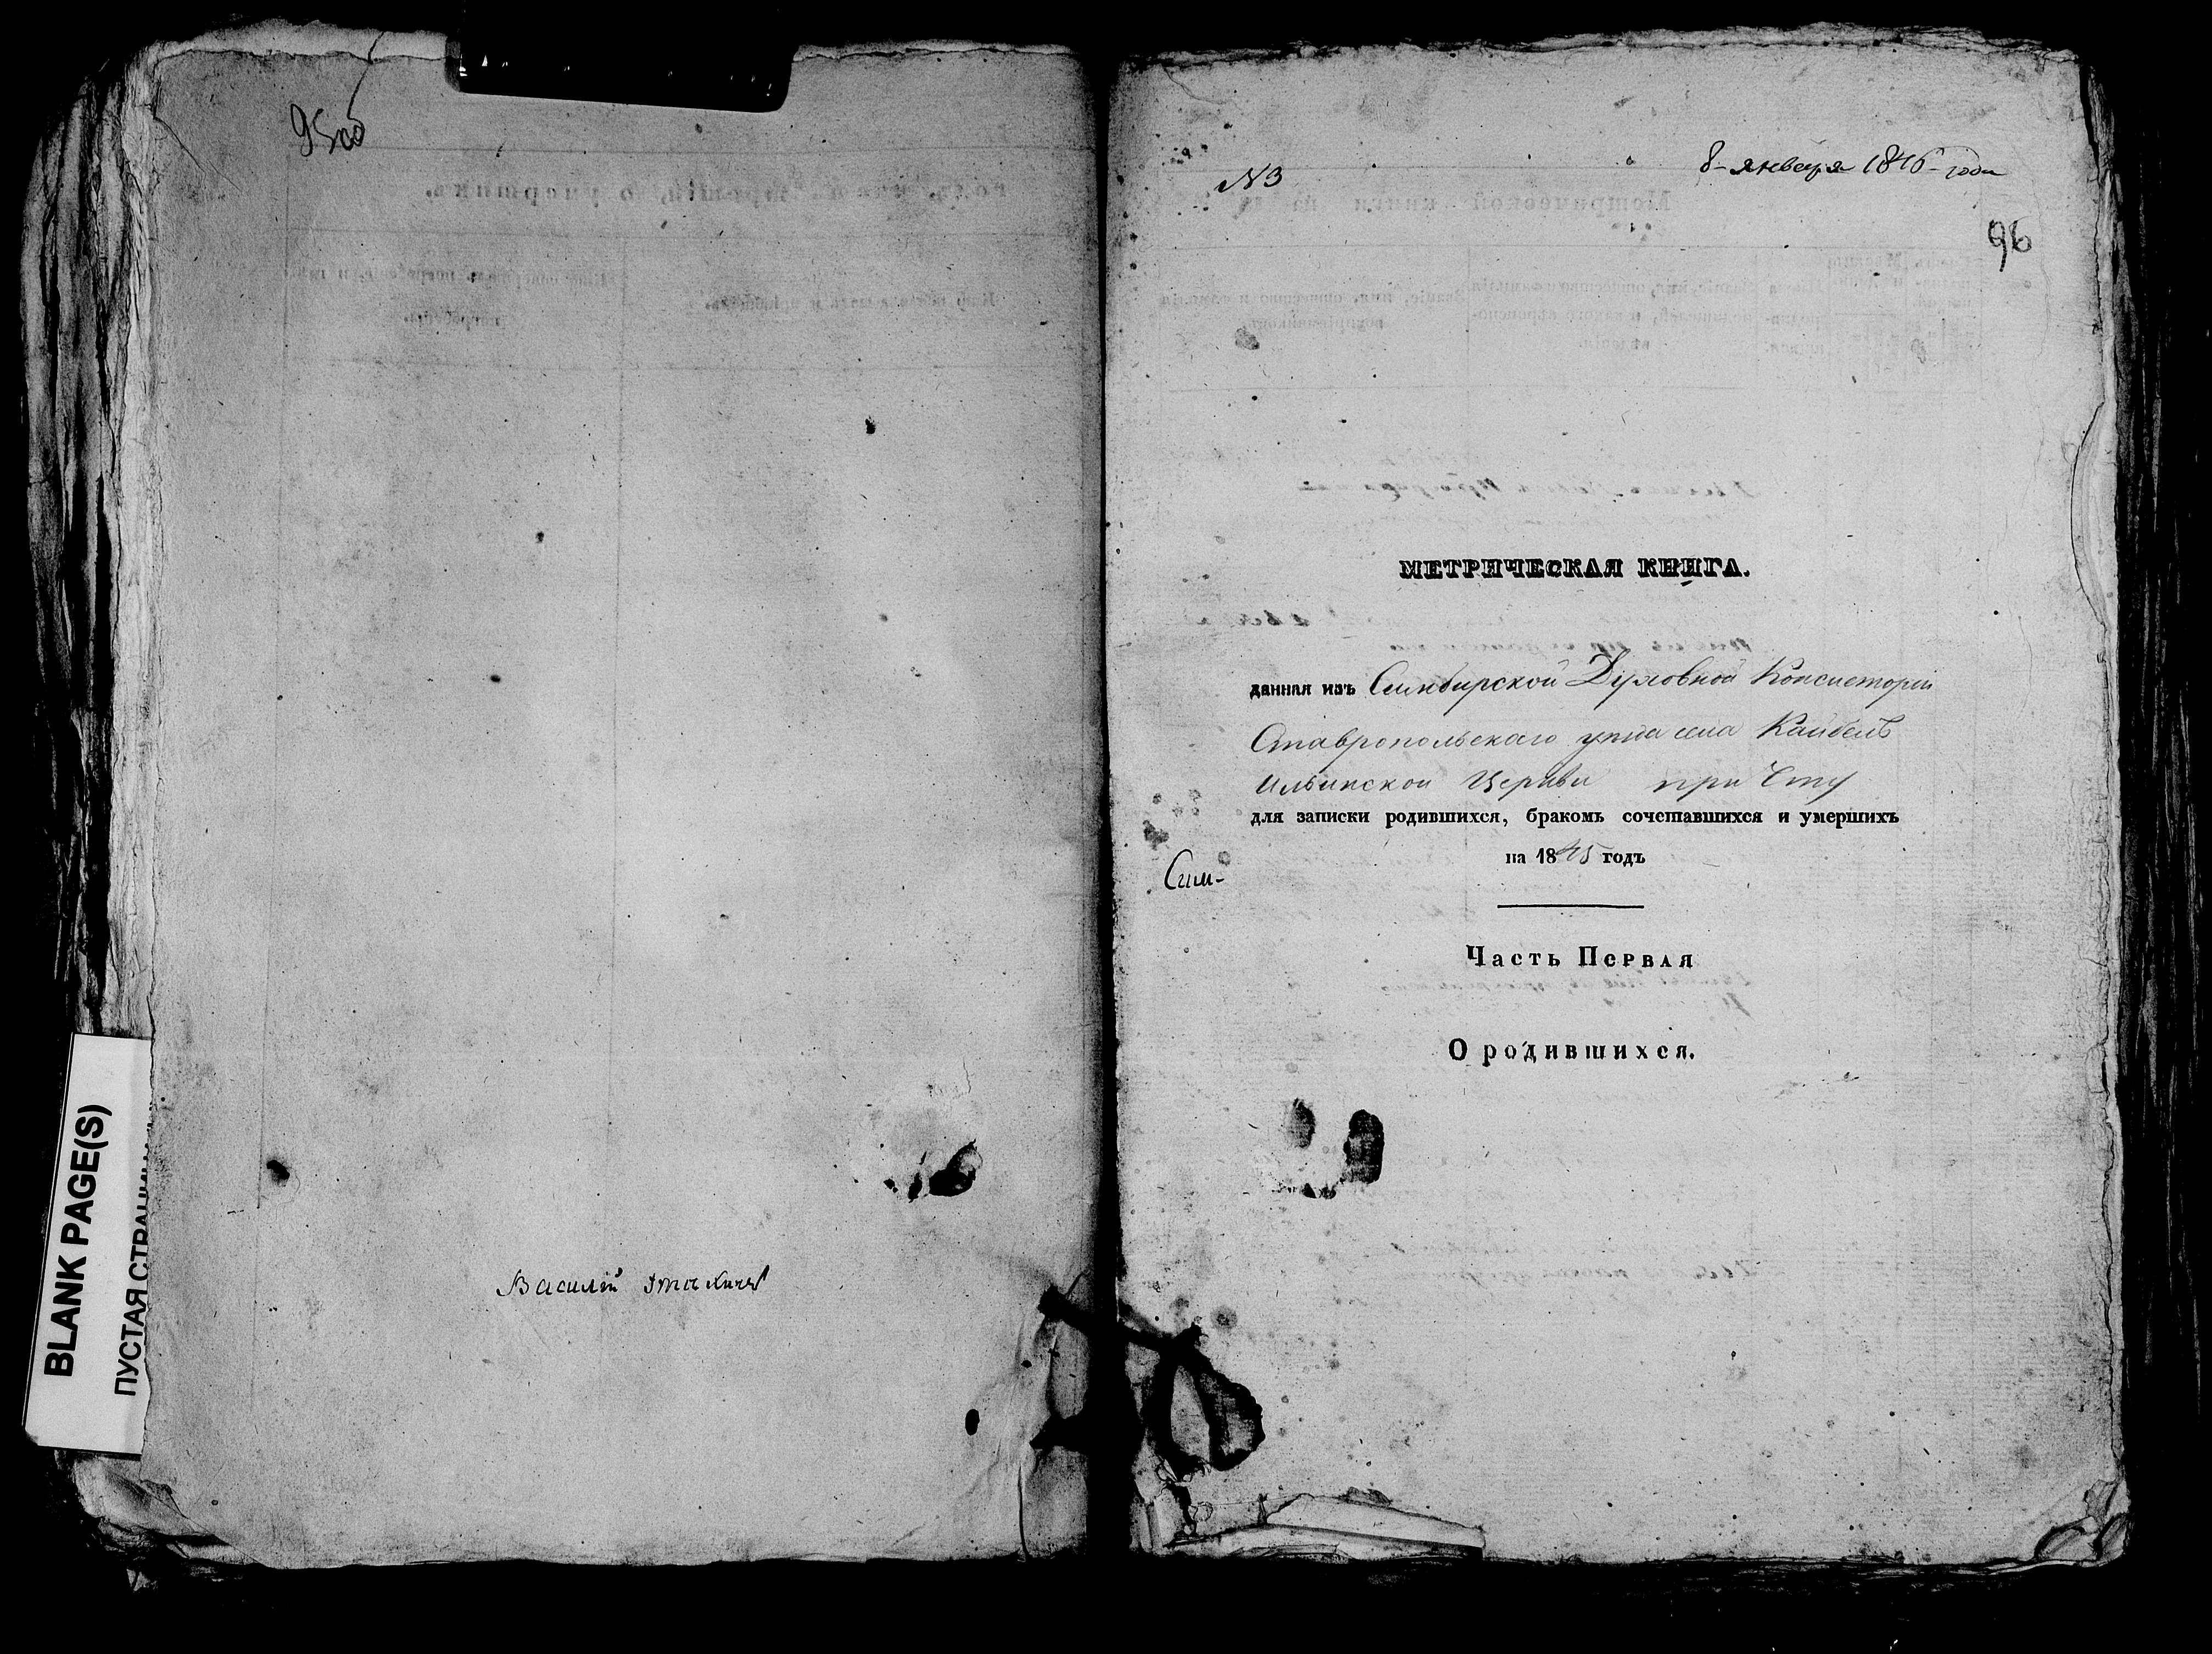 95об
Василій
BLANK PAGE(S)
ПУСТАЯ СТРАНИЦА
N 3
8 января 1846 года
96
МЕТРИЧЕСКАЯ КНИГА.
данная изъ Симбирской Духовной Консисторіи
Ставропольскаго уезда села Кайбелъ
Ильинской Церкви при
для записки родившихся, бракомъ сочетавшихся и умершихъ
на 1845 годъ
Сим-
Часть Первая
О родившихся.